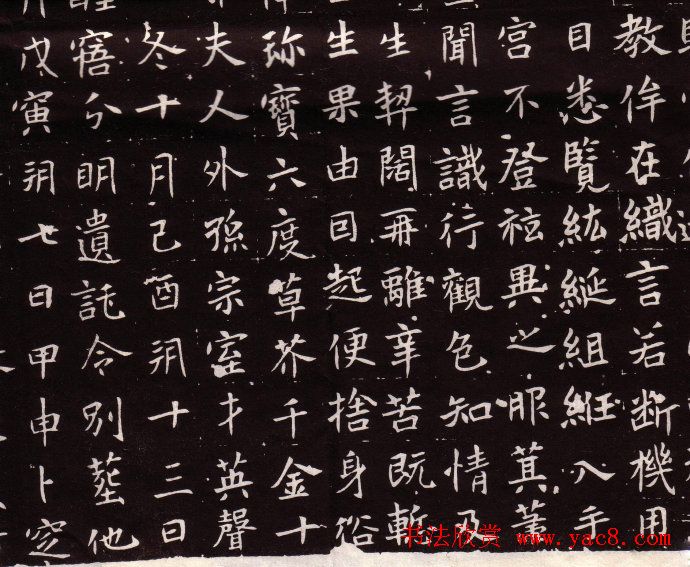 教侔在織言若断機用
目悉覽紘綖組紝入手
宮不登袨異之服箕箒
聞言識行觀色知情及
生契闊再離辛苦既斬
生果由因起便捨身俗
珎寶六度草芥千金十
夫人外孫宗室才英聲
冬十月己酉朔十三日
寤分明遺託令別葬他
戊寅朔七日甲申卜窆
书法欣赏 www.yac8.com